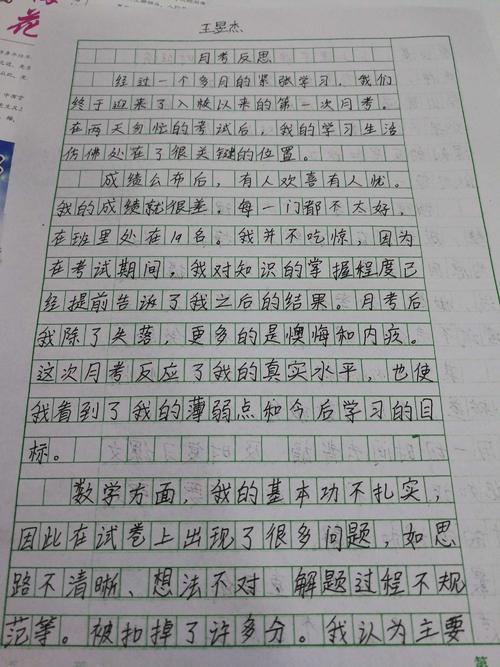 花
王昱杰
月考反思
经过一个多月的紧张学习，我们
终于迎来了入校以来的第一次月考。
在两天匆忙的考试后，我的学习生活
仿佛处在了很关键的位置。
成绩公布后，有人欢喜有人忧。
我的成绩就很差，每一门都不太好，
在班里处在19名。我并不吃惊，因为
在考试期间，我对知识的掌握程度已
经提前告诉了我之后的结果。月考后
我除了失落，更多的是懊悔和内疚。
这次月考反应了我的真实水平，也使
我看到了我的薄弱点和今后学习的目
标。
数学方面，我的基本功不扎实，
因此在试卷上出现了很多问题，如思
路不清晰、想法不对、解题过程不规
范等。被扣掉了许多分。我认为主要
第